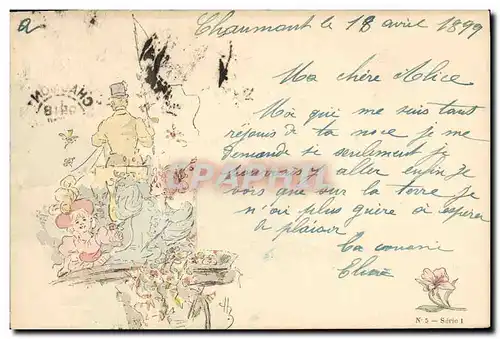 a
Chaumont le 18 avril 1899
Ma chère Alice
Moi qui me suis tant
réjouis de ta noce je me
demande si seulement je
pourrais y aller enfin je
vois que sur la terre je
n'ai plus guère à espérer
de plaisir
Ta cousine
CPARAMA
N° 5 — Série 1